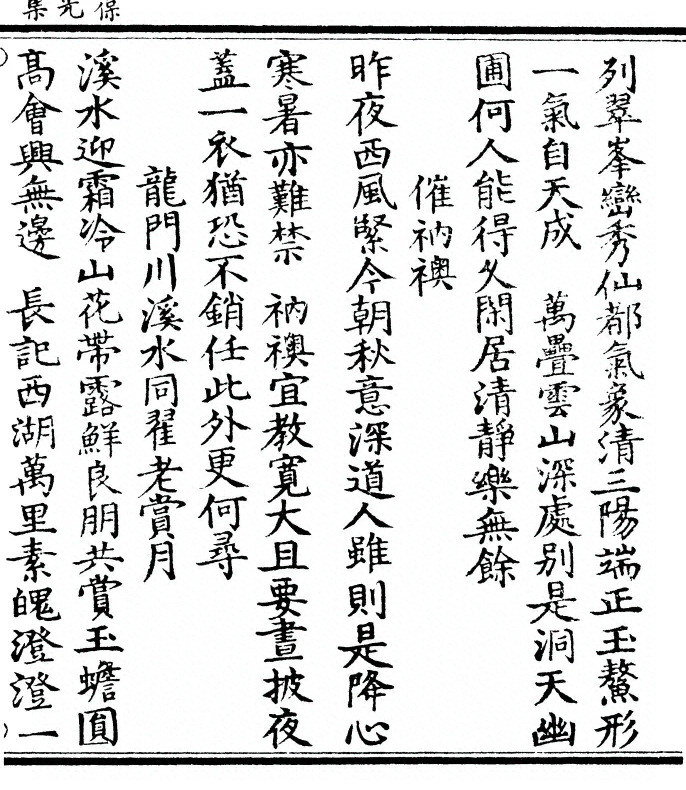 保光集
列翠峯巒秀仙都氣象清三陽端正玉鰲形
一氣自天成　萬疊雲山深處别是洞天幽
圃何人能得久閑居清靜樂無餘
催衲襖
昨夜西風緊今朝秋意深道人雖則是降心
寒暑亦難禁　衲襖宜教寬大且要晝披夜
蓋一衣猶恐不銷任此外更何尋
龍門川溪水同翟老賞月
溪水迎霜冷山花帶露鮮良朋共賞玉蟾圓
高會興無邊　長記西湖萬里素魄澄澄一